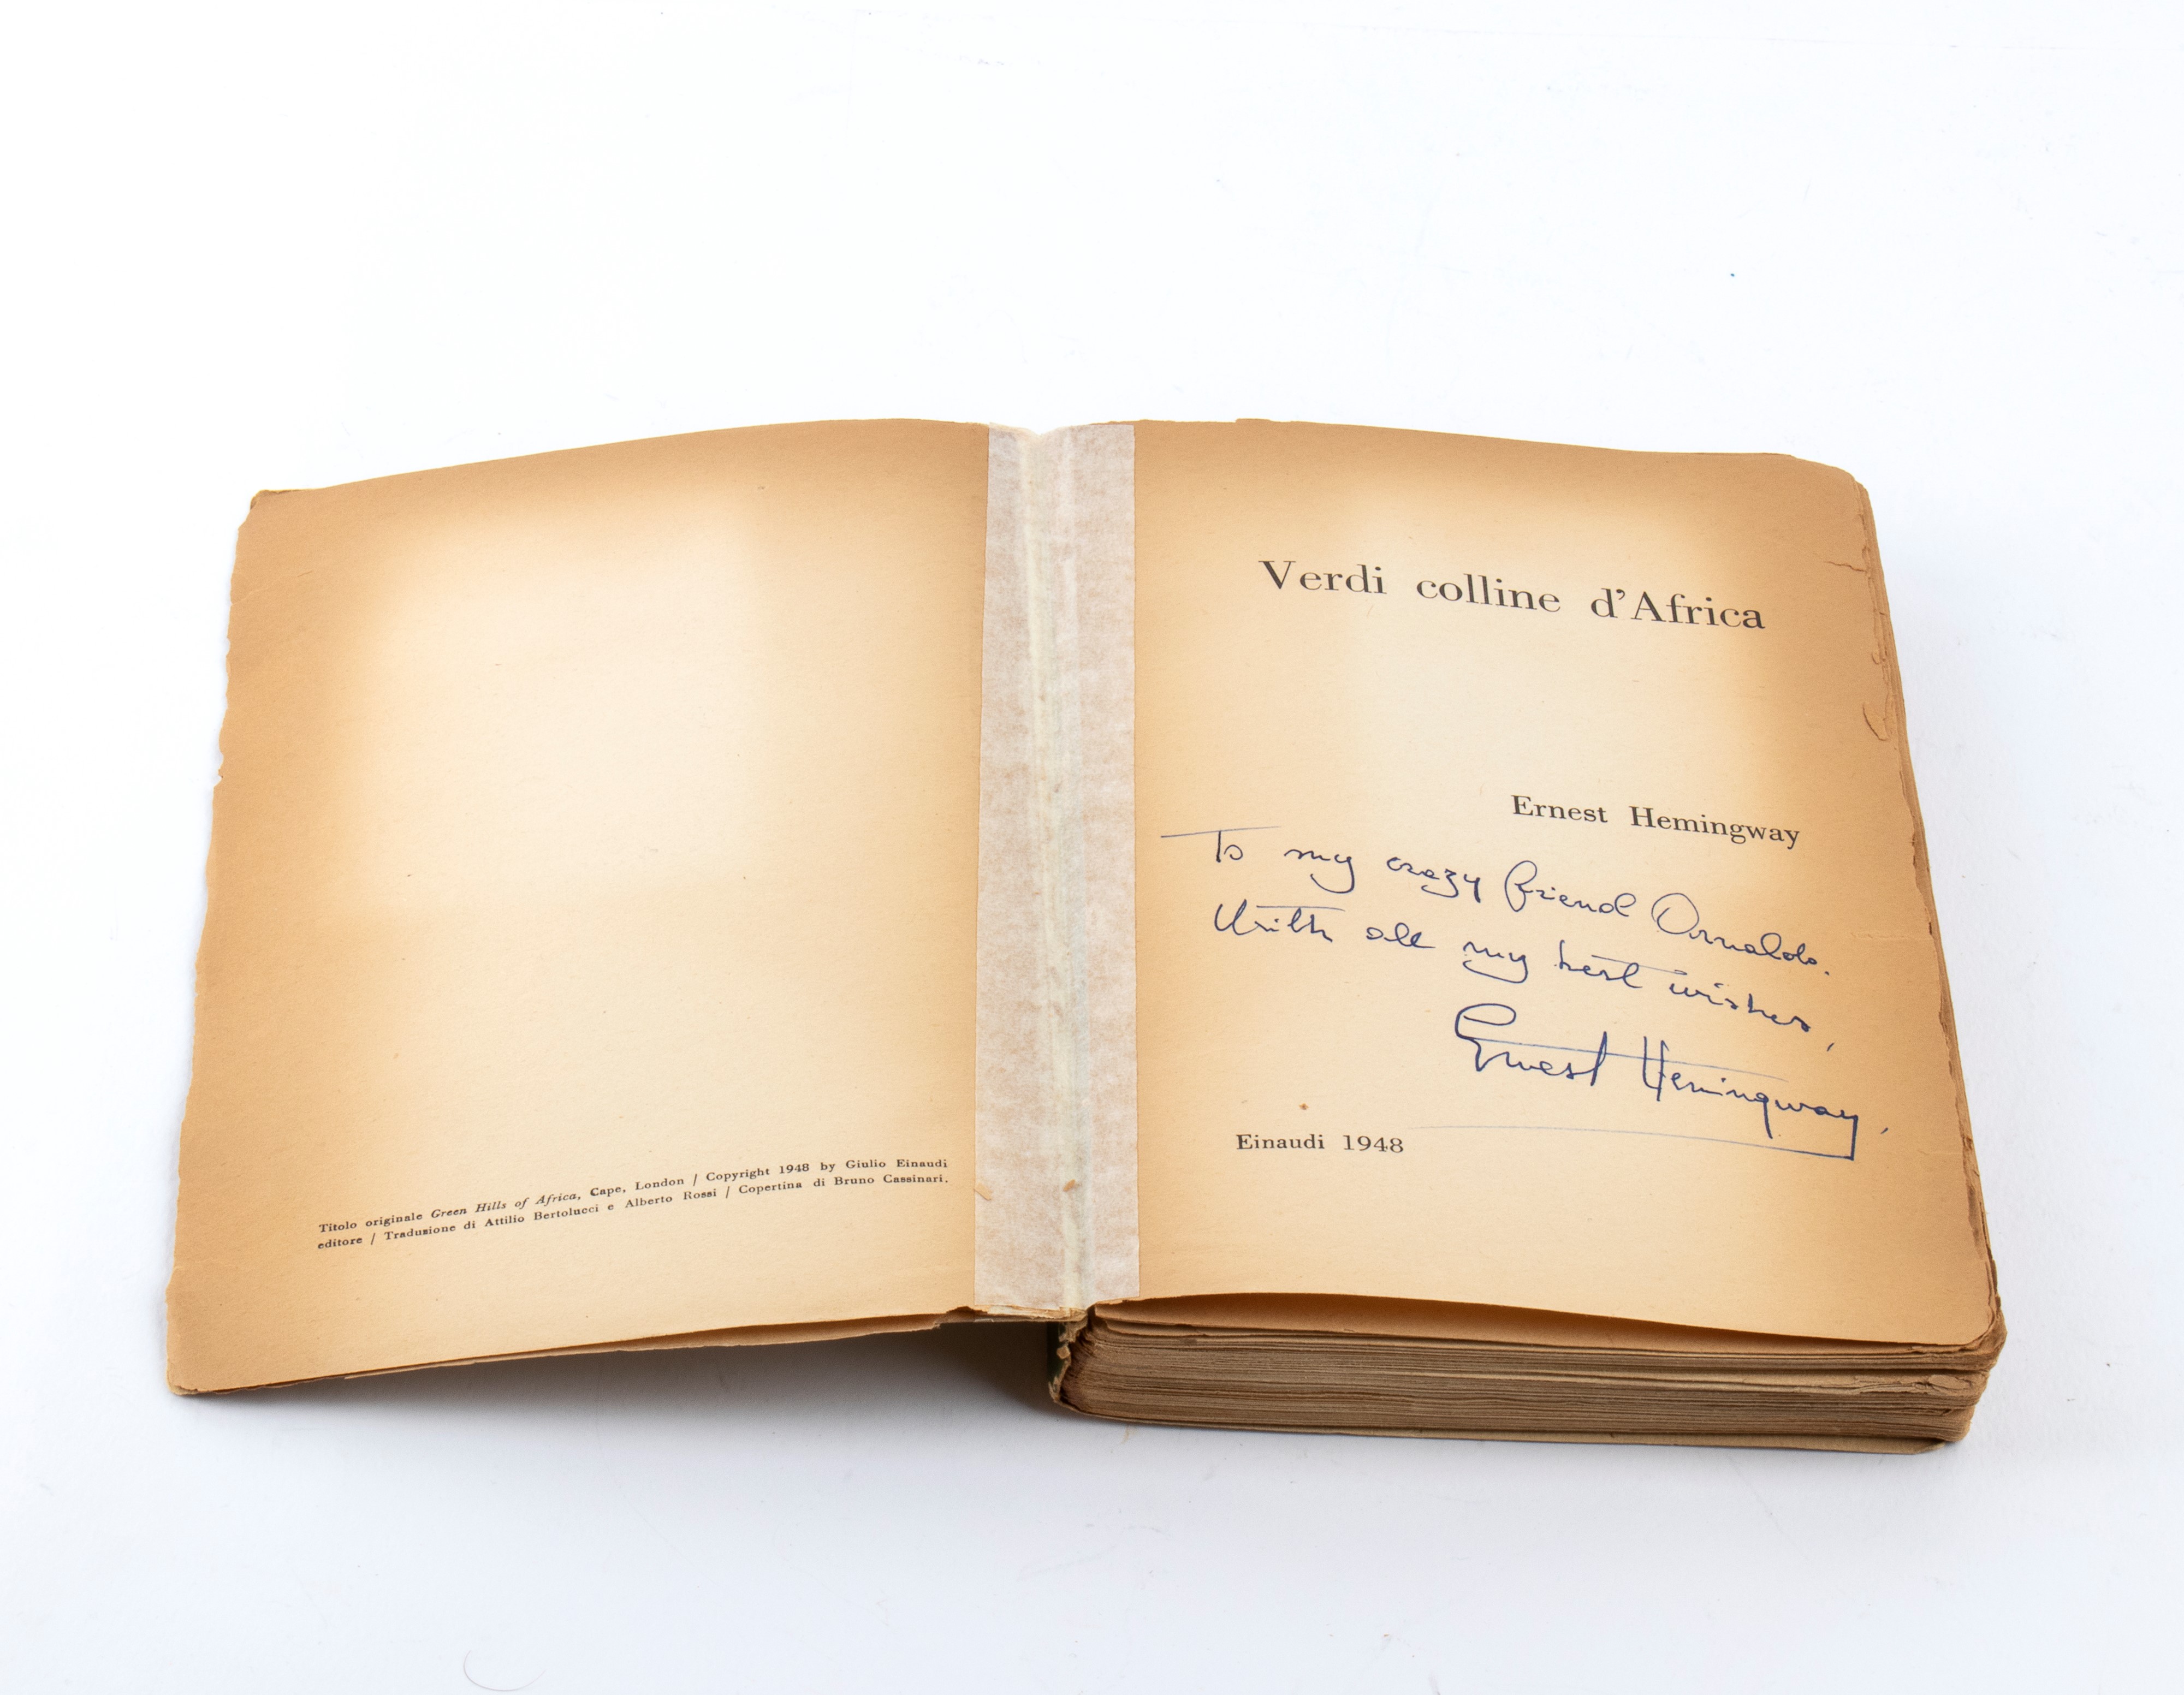 Titolo originale Green Hills of Africa, Cape, London / Copyright 1948 by Giulio Einaudi
editore / Traduzione di Attilio Bertolucci e Alberto Rossi / Copertina di Bruno Cassinari.
Verdi colline d'Africa
Ernest Hemingway
To my crazy friend Arnaldo.
With all my best wishes,
Ernest Hemingway.
Einaudi 1948